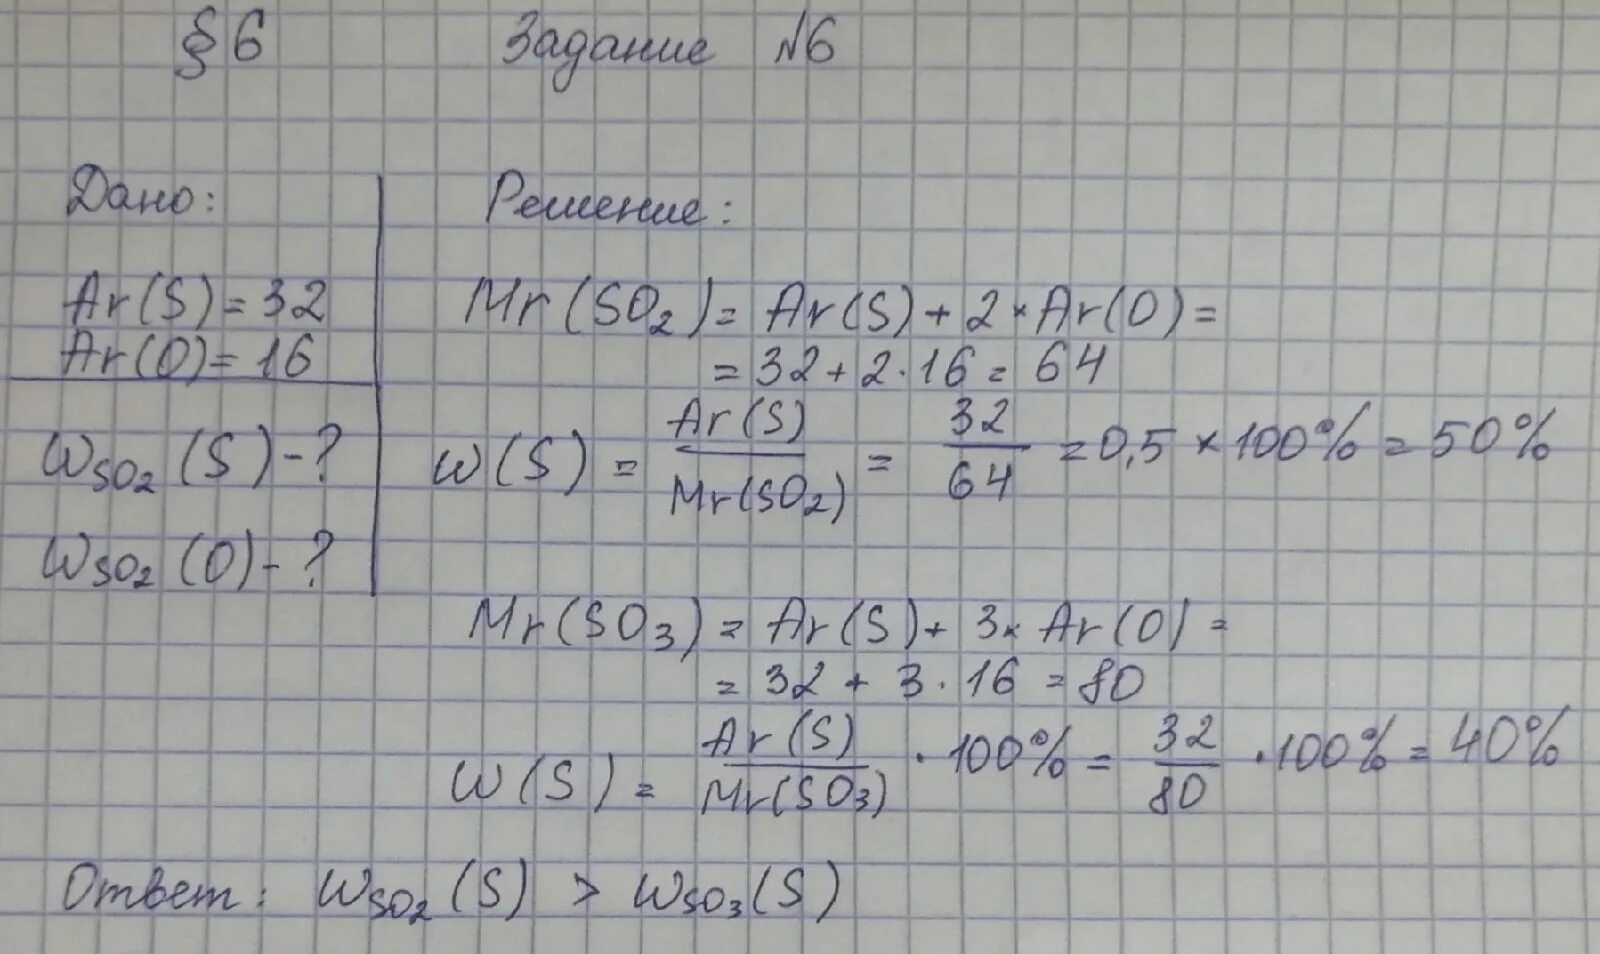 § 6 Задание №6
Дано:
Ar(S) = 32
Ar(O) = 16
W_SO₂ (S) - ?
W_SO₂ (O) - ?
Решение:
Mr(SO₂) = Ar(S) + 2 × Ar(O) =
= 32 + 2 · 16 = 64
W(S) = Ar(S) / Mr(SO₂) = 32 / 64 = 0,5 × 100% = 50%
Mr(SO₃) = Ar(S) + 3 × Ar(O) =
= 32 + 3 · 16 = 80
W(S) = Ar(S) / Mr(SO₃) · 100% = 32 / 80 · 100% = 40%
Ответ: W_SO₂ (S) > W_SO₃ (S)